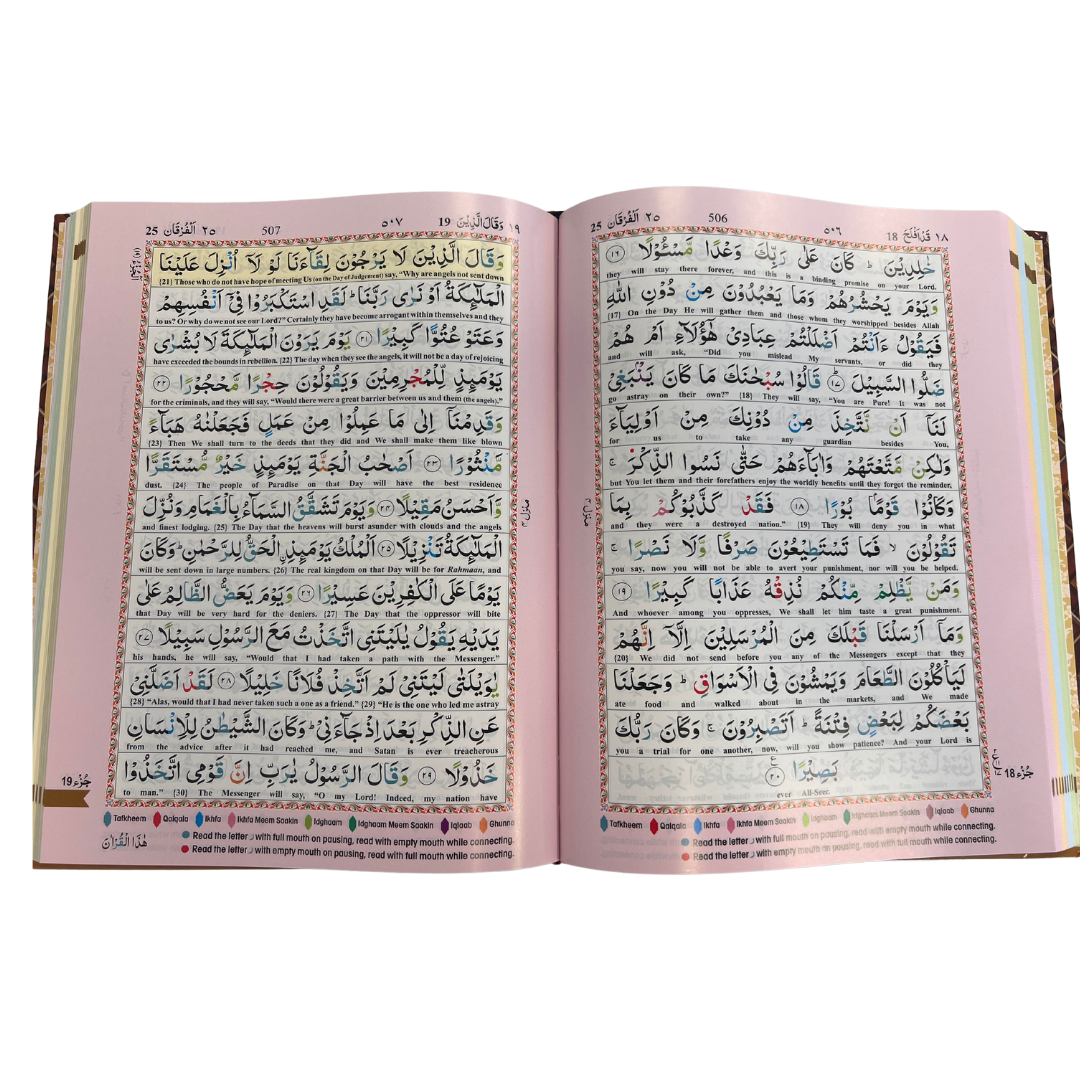 ١٨ قَدْ اَفْلَحَ 18 ٥٠٦ 506 ٢٥ اَلْفُرْقَان 25
خٰلِدِيْنَ ؕ كَانَ عَلٰى رَبِّكَ وَعْدًا مَّسْـُٔوْلًا ١٦
they will stay there forever, and this is a binding promise on your Lord.
وَيَوْمَ يَحْشُرُهُمْ وَمَا يَعْبُدُوْنَ مِنْ دُوْنِ اللّٰهِ
{17} On the Day He will gather them and those whom they worshipped besides Allah
فَيَقُوْلُ ءَاَنْتُمْ اَضْلَلْتُمْ عِبَادِىْ هٰٓؤُلَآءِ اَمْ هُمْ
and will ask, "Did you mislead My servants, or did they
ضَلُّوا السَّبِيْلَ ١٧ قَالُوْا سُبْحٰنَكَ مَا كَانَ يَنْۢبَغِىْ
go astray on their own?" {18} They will say, "You are Pure! It was not
لَنَآ اَنْ نَّتَّخِذَ مِنْ دُوْنِكَ مِنْ اَوْلِيَآءَ
for us to take any guardian besides You,
وَلٰكِنْ مَّتَّعْتَهُمْ وَاٰبَآءَهُمْ حَتّٰى نَسُوا الذِّكْرَ ۚ
but You let them and their forefathers enjoy the worldly benefits until they forgot the reminder,
وَكَانُوْا قَوْمًا بُوْرًا ١٨ فَقَدْ كَذَّبُوْكُمْ بِمَا
and they were a destroyed nation." {19} They will deny you in what
تَقُوْلُوْنَ ۙ فَمَا تَسْتَطِيْعُوْنَ صَرْفًا وَّلَا نَصْرًا ۚ
you say, now you will not be able to avert your punishment, nor will you be helped.
وَمَنْ يَّظْلِمْ مِّنْكُمْ نُذِقْهُ عَذَابًا كَبِيْرًا ١٩
And whoever among you oppresses, We shall let him taste a great punishment.
وَمَآ اَرْسَلْنَا قَبْلَكَ مِنَ الْمُرْسَلِيْنَ اِلَّآ اِنَّهُمْ
{20} We did not send before you any of the Messengers except that they
لَيَاْكُلُوْنَ الطَّعَامَ وَيَمْشُوْنَ فِى الْاَسْوَاقِ ؕ وَجَعَلْنَا
ate food and walked about in the markets, and We made
بَعْضَكُمْ لِبَعْضٍ فِتْنَةً ؕ اَتَصْبِرُوْنَ ۚ وَكَانَ رَبُّكَ
you a trial for one another, now, will you show patience? And your Lord is
بَصِيْرًا ٢٠
ever All-Seer.
جُزْء 18
مَنْزِل ٤
Tafkheem Qalqala Ikhfa Ikhfa Meem Saakin Idghaam Idghaam Meem Saakin Iqlaab Ghunna
Read the letter ر with full mouth on pausing, read with empty mouth while connecting.
Read the letter ر with empty mouth on pausing, read with full mouth while connecting.
١٩ وَقَالَ الَّذِيْنَ 19 ٥٠٧ 507 ٢٥ اَلْفُرْقَان 25
وَقَالَ الَّذِيْنَ لَا يَرْجُوْنَ لِقَآءَنَا لَوْ لَآ اُنْزِلَ عَلَيْنَا
{21} Those who do not have hope of meeting Us (on the Day of Judgement) say, "Why are angels not sent down
الْمَلٰٓئِكَةُ اَوْ نَرٰى رَبَّنَا ؕ لَقَدِ اسْتَكْبَرُوْا فِىْٓ اَنْفُسِهِمْ
to us? Or why do we not see our Lord?" Certainly they have become arrogant within themselves and they
وَعَتَوْ عُتُوًّا كَبِيْرًا ٢١ يَوْمَ يَرَوْنَ الْمَلٰٓئِكَةَ لَا بُشْرٰى
have exceeded the bounds in rebellion. {22} The day when they see the angels, it will not be a day of rejoicing
يَوْمَئِذٍ لِّلْمُجْرِمِيْنَ وَيَقُوْلُوْنَ حِجْرًا مَّحْجُوْرًا ٢٢
for the criminals, and they will say, "Would there were a great barrier between us and them (the angels)."
وَقَدِمْنَآ اِلٰى مَا عَمِلُوْا مِنْ عَمَلٍ فَجَعَلْنٰهُ هَبَآءً
{23} Then We shall turn to the deeds that they did and We shall make them like blown
مَّنْثُوْرًا ٢٣ اَصْحٰبُ الْجَنَّةِ يَوْمَئِذٍ خَيْرٌ مُّسْتَقَرًّا
dust. {24} The people of Paradise on that Day will have the best residence
وَّاَحْسَنُ مَقِيْلًا ٢٤ وَيَوْمَ تَشَقَّقُ السَّمَآءُ بِالْغَمَامِ وَنُزِّلَ
and finest lodging. {25} The Day that the heavens will burst asunder with clouds and the angels
الْمَلٰٓئِكَةُ تَنْزِيْلًا ٢٥ اَلْمُلْكُ يَوْمَئِذِ ۨالْحَقُّ لِلرَّحْمٰنِ ؕ وَكَانَ
will be sent down in large numbers. {26} The real kingdom on that Day will be for Rahmaan, and
يَوْمًا عَلَى الْكٰفِرِيْنَ عَسِيْرًا ٢٦ وَيَوْمَ يَعَضُّ الظَّالِمُ عَلٰى
that Day will be very hard for the deniers. {27} The Day that the oppressor will bite
يَدَيْهِ يَقُوْلُ يٰلَيْتَنِى اتَّخَذْتُ مَعَ الرَّسُوْلِ سَبِيْلًا ٢٧
his hands, he will say, "Would that I had taken a path with the Messenger."
يٰوَيْلَتٰى لَيْتَنِىْ لَمْ اَتَّخِذْ فُلَانًا خَلِيْلًا ٢٨ لَقَدْ اَضَلَّنِىْ
{28} "Alas, would that I had never taken such a one as a friend." {29} "He is the one who led me astray
عَنِ الذِّكْرِ بَعْدَ اِذْ جَآءَنِىْ ؕ وَكَانَ الشَّيْطٰنُ لِلْاِنْسَانِ
from the advice after it had reached me, and Satan is ever treacherous
خَذُوْلًا ٢٩ وَقَالَ الرَّسُوْلُ يٰرَبِّ اِنَّ قَوْمِى اتَّخَذُوْا
to man." {30} The Messenger will say, "O my Lord! Indeed, my nation have
جُزْء 19
مَنْزِل ٤
Tafkheem Qalqala Ikhfa Ikhfa Meem Saakin Idghaam Idghaam Meem Saakin Iqlaab Ghunna
Read the letter ر with full mouth on pausing, read with empty mouth while connecting.
Read the letter ر with empty mouth on pausing, read with full mouth while connecting.
هٰذَا الْقُرْاٰنَ